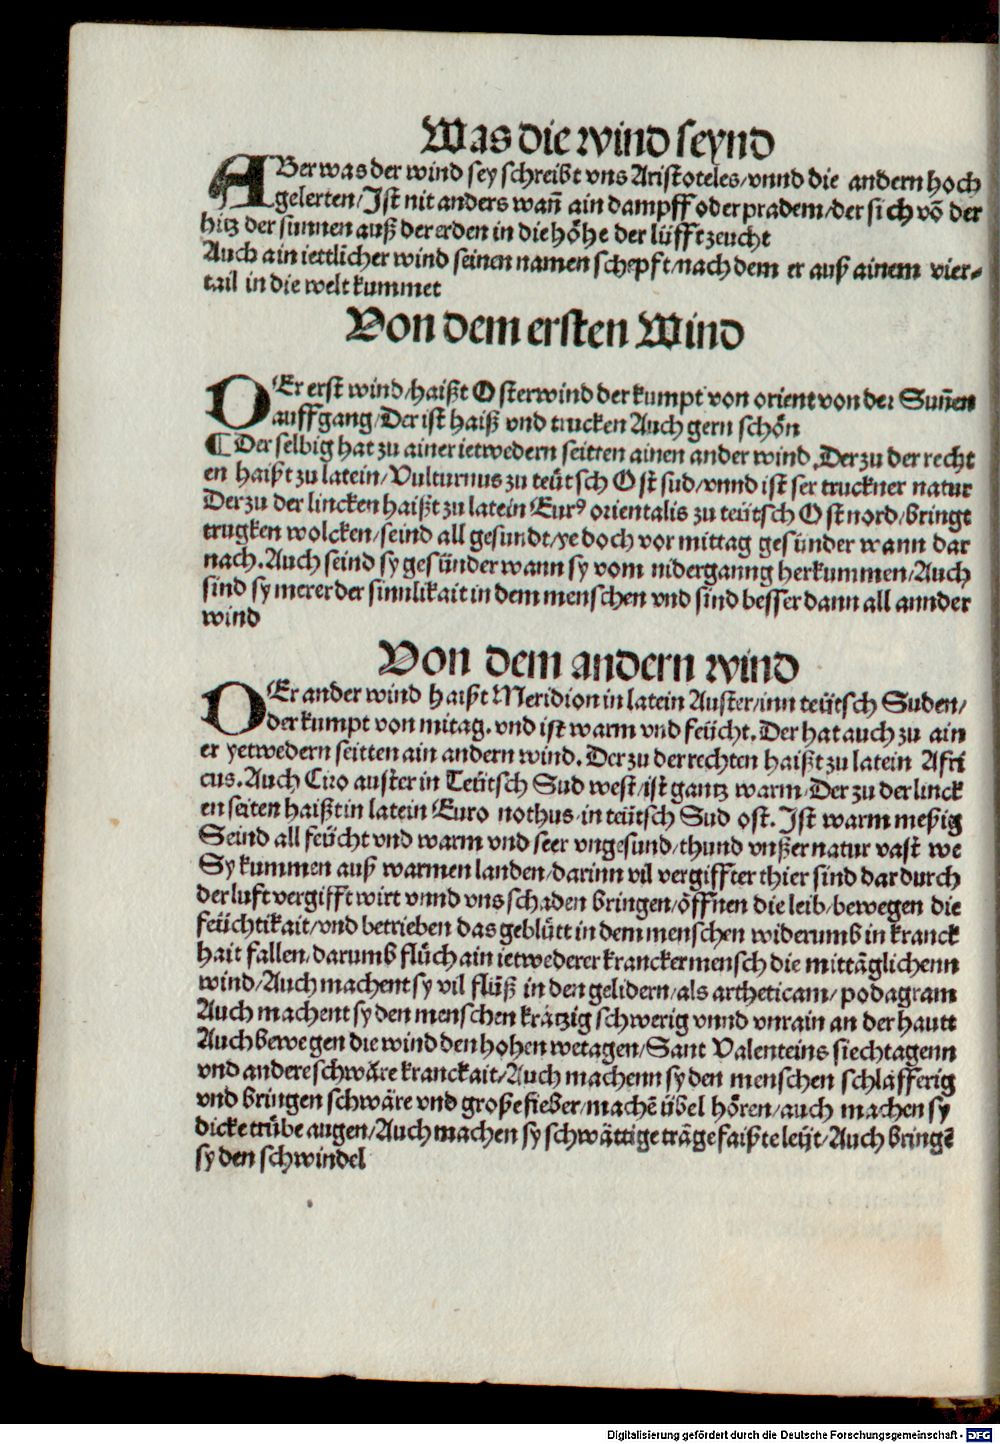 Was die wind seynd
ABer was der wind sey schreibt vns Aristoteles/vnnd die andern hoch
gelerten/Ist nit anders wan̄ ain dampff oder pradem/der sich võ der
hitz der sunnen auß der erden in die höhe der lüfft zeucht
Auch ain iettlicher wind seinen namen schepft/nach dem er auß ainem vier⸗
tail in die welt kummet
Von dem ersten Wind
DEr erst wind/haißt Osterwind der kumpt von orient von der Sun̄en
auffgang/Der ist haiß vnd trucken Auch gern schön
¶ Der selbig hat zu ainer ietwedern seitten ainen ander wind. Der zu der recht
en haißt zu latein/Vulturnus zu teütsch Ost sud/vnnd ist ser truckner natur
Der zu der lincken haißt zu latein Eurꝰ orientalis zu teütsch Ost nord/bringt
trugken wolcken/seind all gesundt/ye doch vor mittag gesünder wann dar
nach. Auch seind sy gesünder wann sy vom nidergaung herkummen/Auch
sind sy merer der sinnlikait in dem menschen vnd sind besser dann all annder
wind
Von dem andern wind
DEr ander wind haißt Meridion in latein Auster/inn teütsch Suden/
der kumpt von mitag. vnd ist warm vnd feücht. Der hat auch zu ain
er yetwedern seitten ain andern wind. Der zu der rechten haißt zu latein Afri
cus. Auch Cuo auster in Teütsch Sud west/ist gantz warm. Der zu der linck
en seiten haißt in latein Euro nothus in teütsch Sud ost. Ist warm meßig
Seind all feücht vnd warm vnd seer vngesund/thund vnßer natur vast we
Sy kummen auß warmen landen/darinn vil vergiffter thier sind dar durch
der luft vergifft wirt vnnd vns schaden bringen/öffnen die leib/bewegen die
feüchtikait/vnd betrieben das geblütt in dem menschen widerumb in kranck
hait fallen/darumb flüch ain ietwederer krancker mensch die mittäglichenn
wind/Auch machent sy vil flüß in den gelidern/als artheticam/podagram
Auch machent sy den menschen krätzig schwerig vnnd vnrain an der hautt
Auch bewegen die wind den hohen wetagen/Sant Valenteins siechtagenn
vnd andere schwäre kranckait/Auch machenn sy den menschen schlafferig
vnd bringen schwäre vnd große fieber/machē übel hören/auch machen sy
dicke trübe augen/Auch machen sy schwättige träge faißte leüt/Auch bringē
sy den schwindel
Digitalisierung gefördert durch die Deutsche Forschungsgemeinschaft - DFG